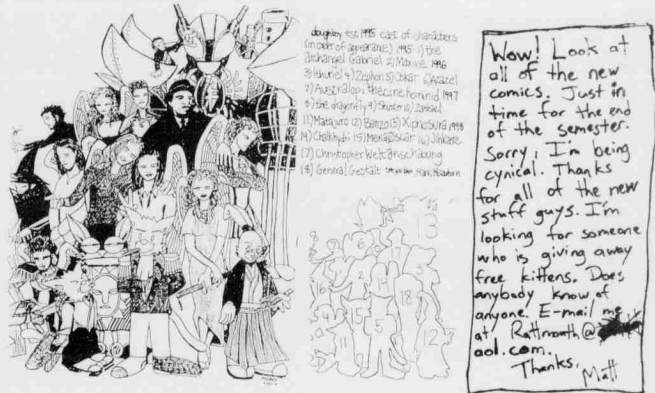 doughboy est. 1995 cast of characters
(in order of appearance) 1995 1) the
archangel Gabriel 2) Maxine 1996
3) Ithuriel 4) Zephon 5) Oskar 6) Azazel
7) Australopithecine hominid 1997
8) the dragonfly 9) Shuster 10) Zazriel
11) Matajuro 12) Banzo 13) Xipnosura 1998
14) Chalkydri 15) MekaOskar 16) Jinkare
17) Christopher Weltanschauung
18) General Gestalt
13
2
18
16
15
5
12
Wow! Look at
all of the new
comics. Just in
time for the end
of the semester.
Sorry, I'm being
cynical. Thanks
for all of the new
stuff guys. I'm
looking for someone
who is giving away
free kittens. Does
anybody know of
anyone. E-mail me
at Rattmouth@
aol.com.
Thanks,
Matt